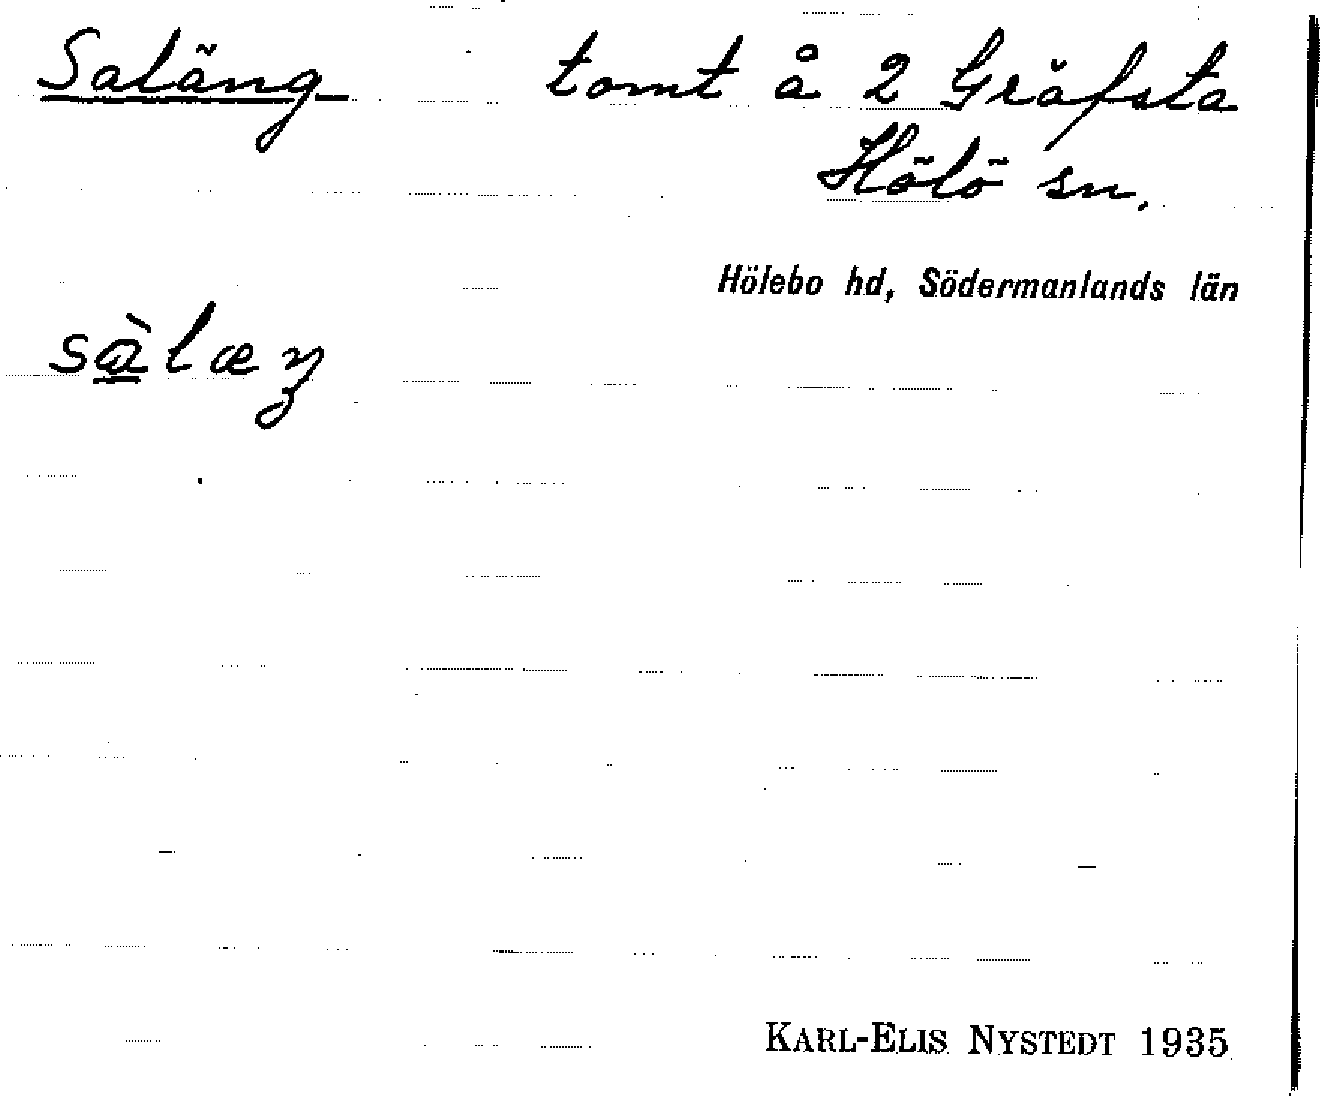 Saläng tomt å 2 Gräfsta
Hölö sn.
Hölebo hd, Södermanlands län
sàlæŋ
KARL-ELIS NYSTEDT 1935